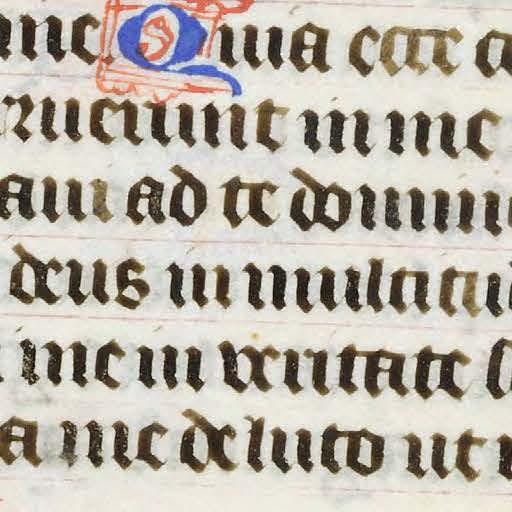 me Quia ecce c
rruerunt in me
am ad te domin
deus in multitud
me in veritate s
a me de luto ut